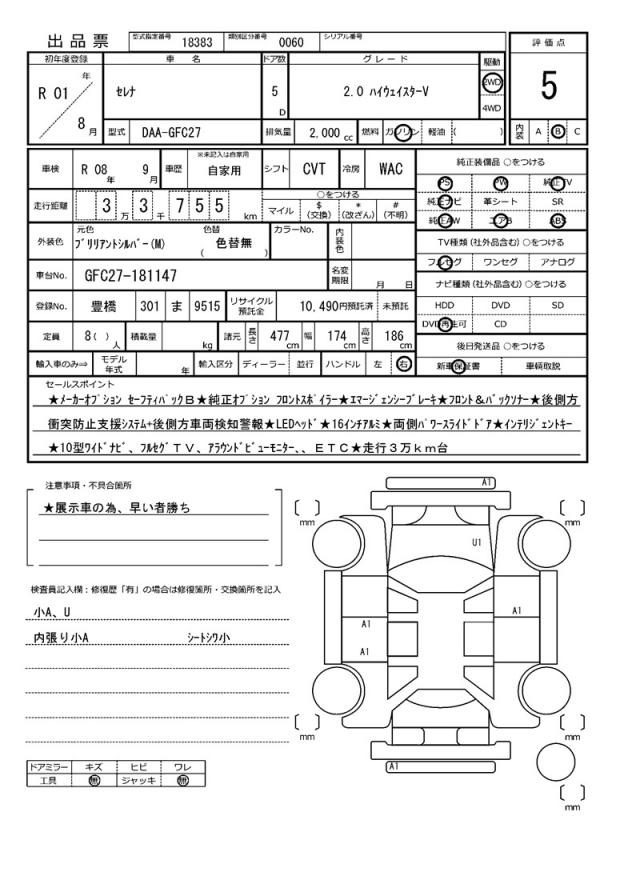 出品票 型式指定番号 18383 類別区分番号 0060 シリアル番号
評価点
5
内装 A B C
初年度登録 車名 ドア数 グレード 駆動
R 01 年 8 月
セレナ 5 D 2.0 ハイウェイスターV 2WD 4WD
型式 DAA-GFC27 排気量 2,000 cc 燃料 ガソリン 軽油 ( )
車検 R 08 年 9 月 車歴 ※未記入は自家用 自家用 シフト CVT 冷房 WAC
走行距離 3 万 3 千 7 5 5 km
○をつける
マイル $ (交換) * (改ざん) # (不明)
外装色 元色 ブリリアントシルバー(M) 色替 色替無 ( ) カラーNo. 内装色
車台No. GFC27-181147 名変期限 月 日
登録No. 豊橋 301 ま 9515 リサイクル預託金 10,490円預託済 未預託
定員 8( )人 積載量 kg 諸元 長さ 477 cm 幅 174 cm 高さ 186 cm
輸入車のみ⇒ モデル年式 年 輸入区分 ディーラー 並行 ハンドル 左 右
純正装備品 ○をつける
PS PW 純正TV
純正ナビ 革シート SR
純正AW エアB ABS
TV種類 (社外品含む) ○をつける
フルセグ ワンセグ アナログ
ナビ種類 (社外品含む) ○をつける
HDD DVD SD
DVD再生可 CD
後日発送品 ○をつける
新車保証書 車輌取説
セールスポイント
★メーカーオプション セーフティパックB★純正オプション フロントスポイラー★エマージェンシーブレーキ★フロント&バックソナー★後側方
衝突防止支援システム+後側方車両検知警報★LEDヘッド★16インチアルミ★両側パワースライドドア★インテリジェントキー
★10型ワイドナビ、フルセグTV、アラウンドビューモニター、、ETC★走行3万km台
注意事項・不具合箇所
★展示車の為、早い者勝ち
検査員記入欄:修復歴「有」の場合は修復箇所・交換箇所を記入
小A、U
内張り小A シートシワ小
ドアミラー キズ ヒビ ワレ
工具 無 ジャッキ 無
A1
mm
mm
U1
A1
A1
A1
mm
mm
A1
mm